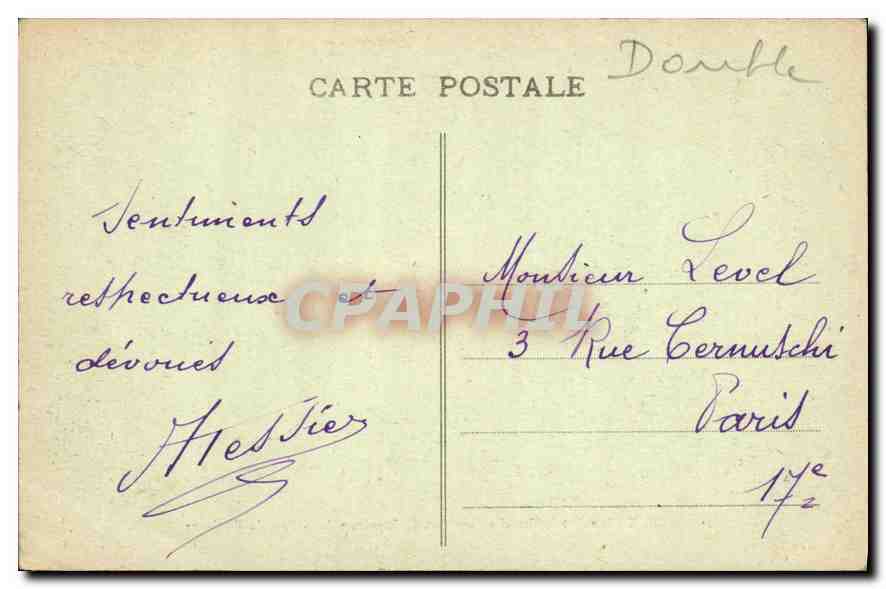 Double
CARTE POSTALE
Sentiments
respectueux et
dévoués
Messier
Monsieur Level
3 Rue Cernuschi
Paris
17e
CPAPHIL